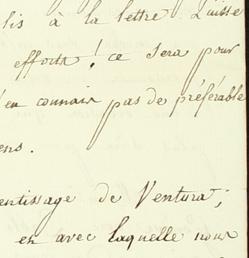 lis à la lettre Puisse
efforts! ce sera pour
'en connais pas de préférable
ens.
entissage de Ventura;
en avec laquelle nous